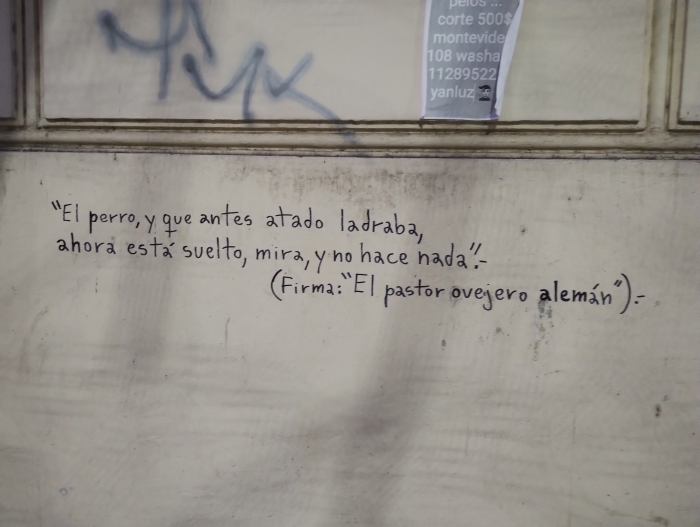 pelos ...
corte 500$
montevide
108 washa
11289522
yanluz
"El perro, y que antes atado ladraba,
ahora está suelto, mira, y no hace nada".-
(Firma: "El pastor ovejero alemán").-